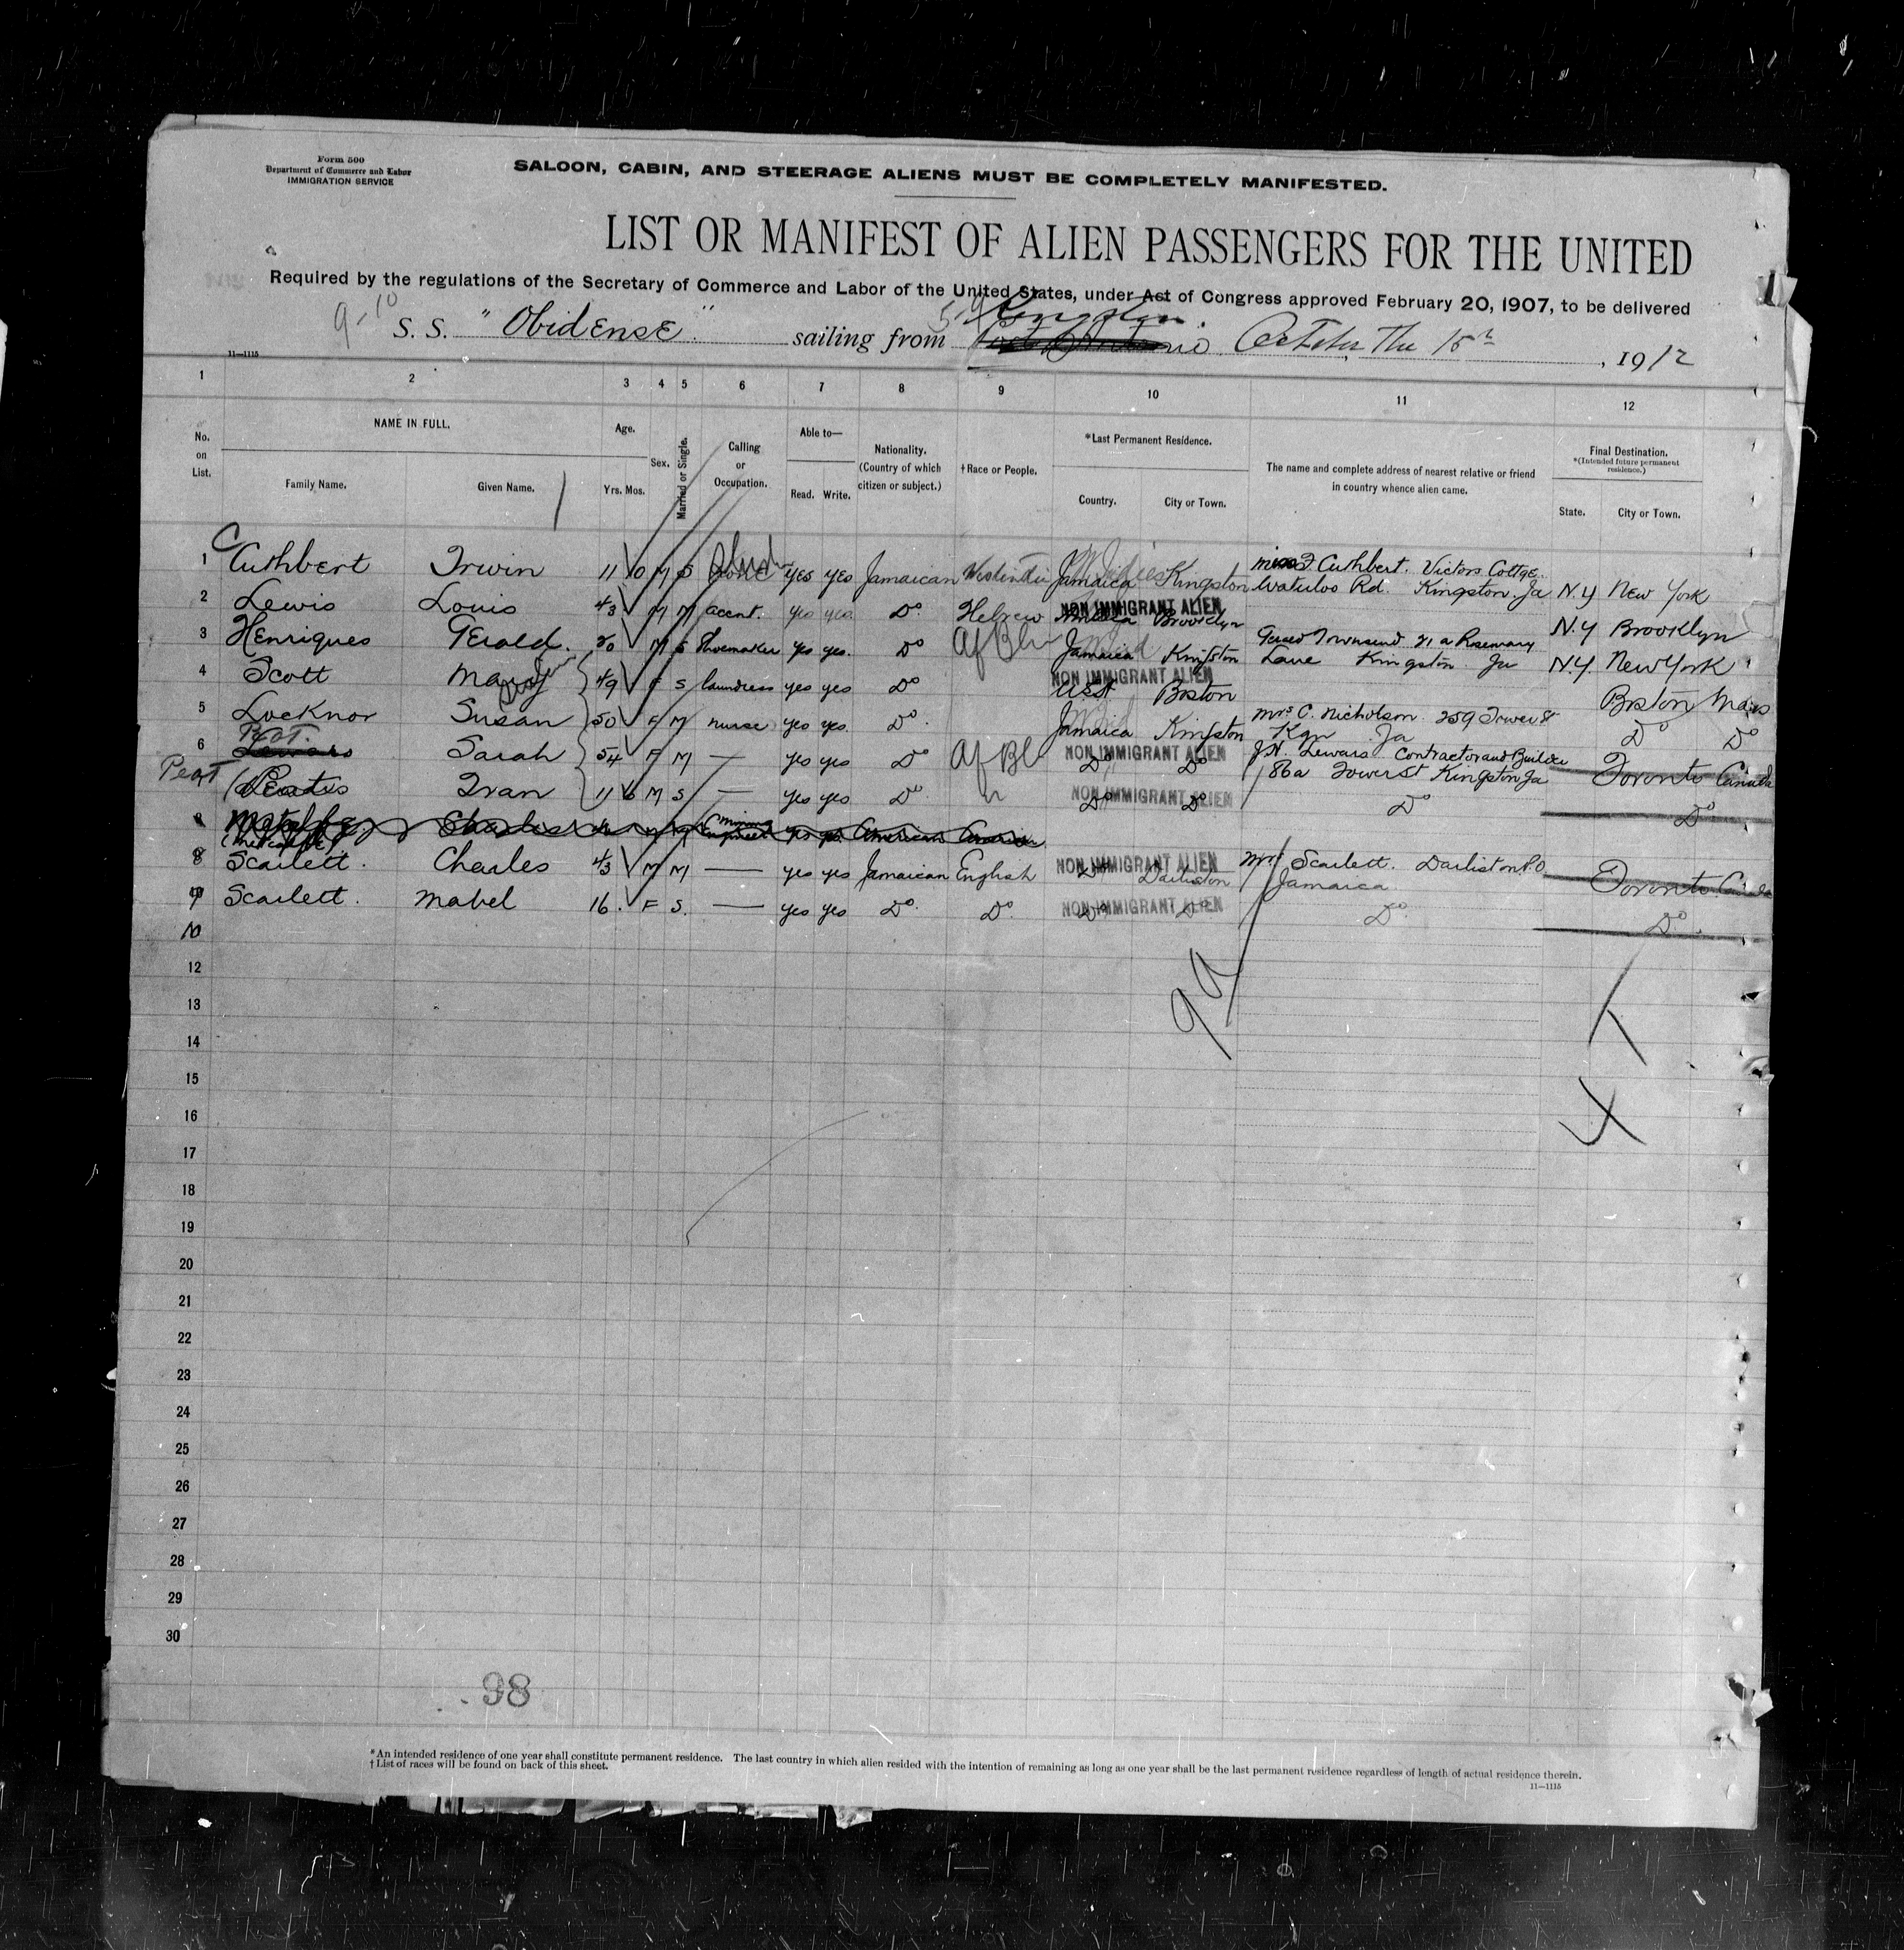 Form 500
Department of Commerce and Labor
IMMIGRATION SERVICE
SALOON, CABIN, AND STEERAGE ALIENS MUST BE COMPLETELY MANIFESTED.
LIST OR MANIFEST OF ALIEN PASSENGERS FOR THE UNITED
Required by the regulations of the Secretary of Commerce and Labor of the United States, under Act of Congress approved February 20, 1907, to be delivered
9-10 S. S. "Obidense" sailing from Kingston October The 15th, 1912
11—1115
1 2 3 4 5 6 7 8 9 10 11 12
No. on List. NAME IN FULL. Family Name. Given Name. Age. Yrs. Mos. Sex. Married or Single. Calling or Occupation. Able to— Read. Write. Nationality. (Country of which citizen or subject.) †Race or People. *Last Permanent Residence. Country. City or Town. The name and complete address of nearest relative or friend in country whence alien came. Final Destination. *(Intended future permanent residence.) State. City or Town.
1 Cuthbert Irwin 11 10 M S none yes yes Jamaican Jamaica Kingston Miss Cuthbert. Victors Cottge. Waterloo Rd. Kingston. Ja N.Y New York
2 Lewis Louis 43 M M accnt. yes yes Do Hebrew NON IMMIGRANT ALIEN Brooklyn N.Y Brooklyn
3 Henriques Gerald. 20 M S Shoemaker yes yes. Do Af Bl Jamaica Kingston Townsend 21 a Rosemary Lane Kingston Ja N.Y. New York
4 Scott Mary 49 F S laundress yes yes Do NON IMMIGRANT ALIEN USA Boston Boston Mass
5 Locknor Susan 50 F M nurse yes yes. Do Jamaica Kingston Mrs C. Nicholson 259 Tower St Kgn Ja Do Do
6 Sarah 54 F M — yes yes Do Af Bl NON IMMIGRANT ALIEN Do Do J.H. Lewars Contractor and Builder 186a Tower St Kingston Ja Toronto Canada
Peat Ivan 11 6 M S — yes yes. Do NON IMMIGRANT ALIEN Do Do Do Do
8 Charles Mining Engineer yes yes American
8 Scarlett. Charles 43 M M — yes yes Jamaican English NON IMMIGRANT ALIEN Do Darliston Mrs Scarlett. Darliston P.O Jamaica Toronto Canada
9 Scarlett. Mabel 16. F S. — yes yes Do. Do. NON IMMIGRANT ALIEN Do Do Do Do
10
12
13
14
15
16
17
18
19
20
21
22
23
24
25
26
27
28
29
30
98
*An intended residence of one year shall constitute permanent residence. The last country in which alien resided with the intention of remaining as long as one year shall be the last permanent residence regardless of length of actual residence therein.
†List of races will be found on back of this sheet.
11—1115